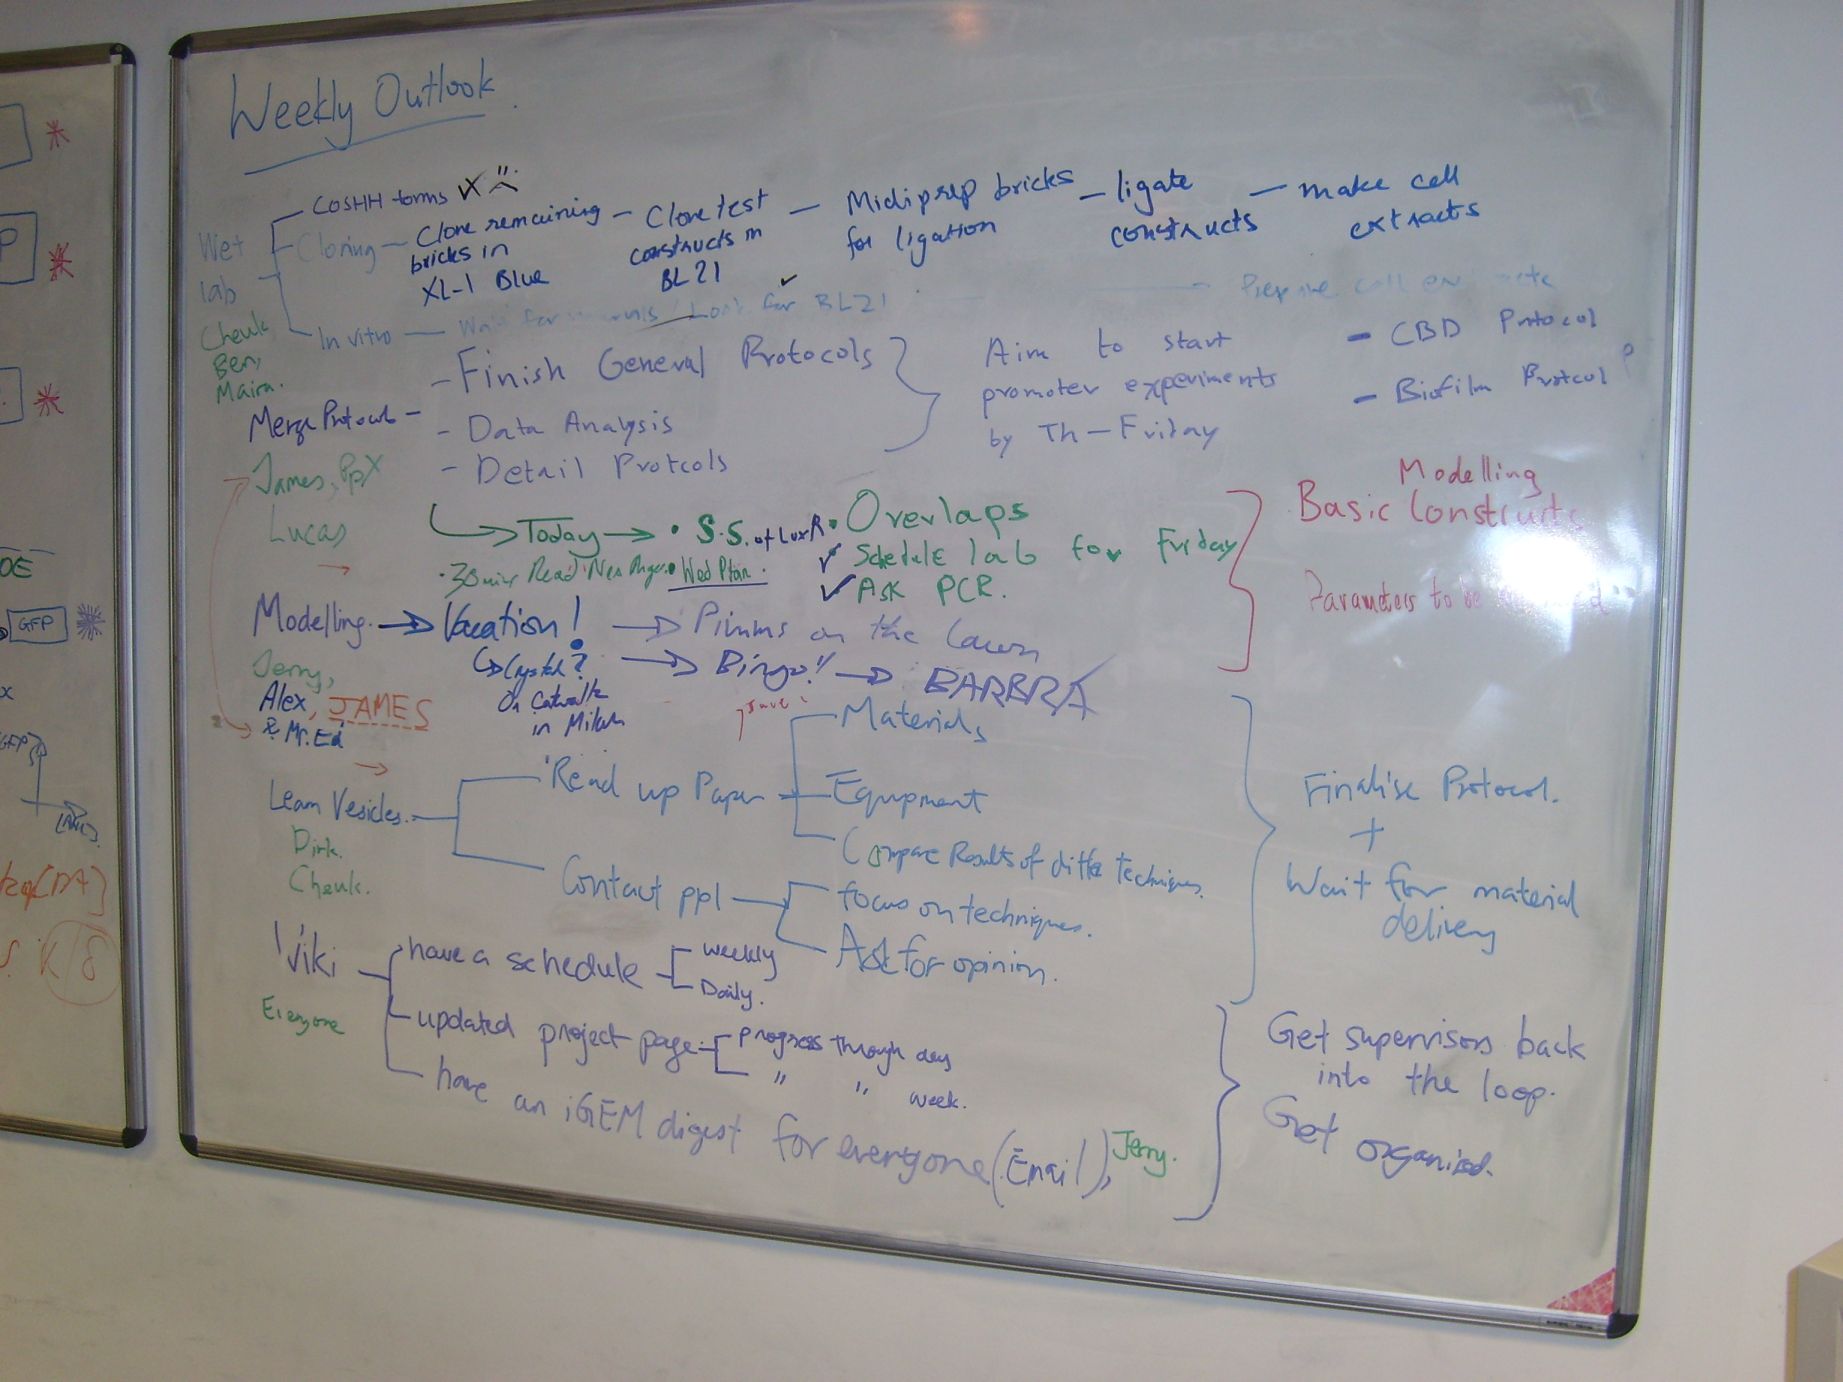 Weekly Outlook.
COSHH forms
Wet lab
Cloning
Clone remaining bricks in XL-1 Blue
Clone test constructs in BL21
Midiprep bricks for ligation
ligate constructs
make cell extracts
In vitro
Look for BL21
Cheuk
Ben,
Maira.
Merge Protocols
- Finish General Protocols
- Data Analysis
- Detail Protcols
Aim to start promoter experiments by Th - Friday
- CBD Protocol
- Biofilm Protcol ?
James,
Lucas
Today
• S.S. of LuxR
• Overlaps
Schedule lab for Friday
Ask PCR.
Modelling
Basic Constructs
Parameters to be
Modelling
Vacation!
Pimms on the Lawn
Crystal?
Or Catwalk in Milan
Bingo!!
BARBRA
Jerry,
Alex, JAMES
& Mr. Ed
Learn Vesicles.
Dirk.
Cheuk.
Read up Paper
Materials
Equipment
Compare Results of
Techniques.
Contact ppl
focus on techniques.
Ask for opinion.
Finalise Protocol.
+
Wait for material delivery
Wiki
Everyone
have a schedule
weekly
Daily.
updated project page
progress through day
" " week.
have an iGEM digest for everyone (Email), Jerry.
Get supervisors back into the loop.
Get organised.
GFP